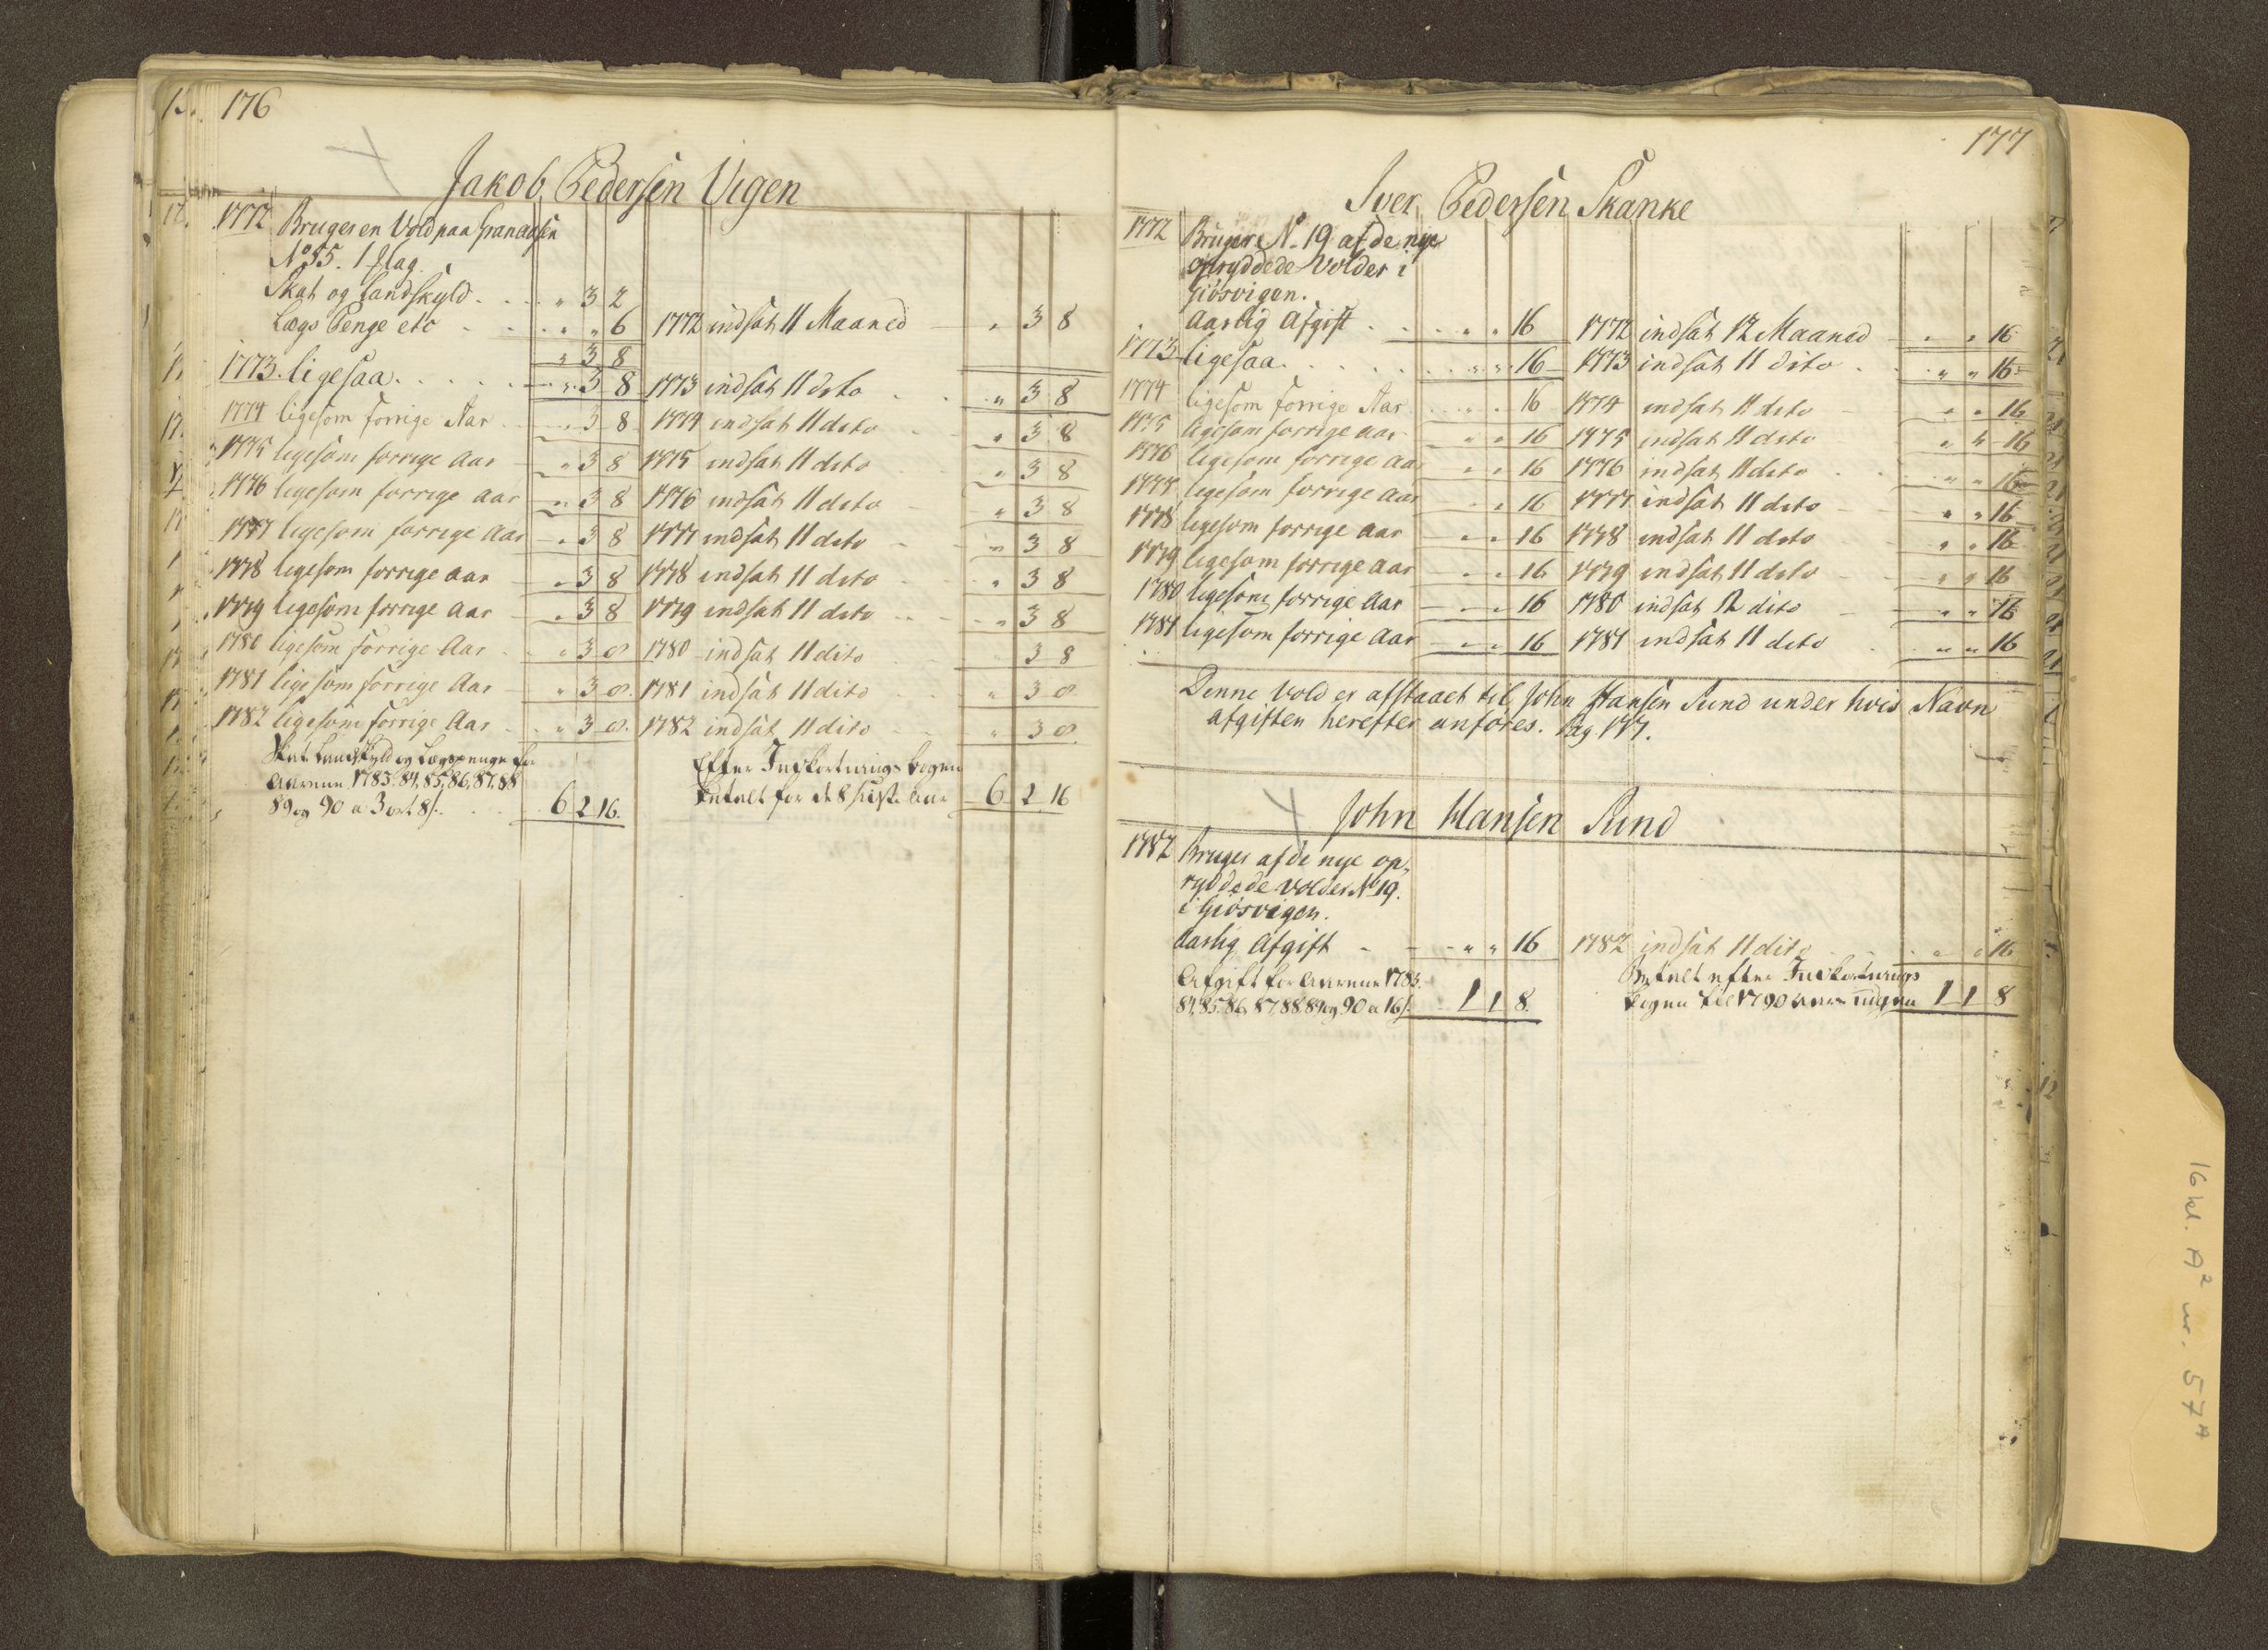 176
Jakob Pedersen Vigen
1772 Bruger en Vold paa Granaasen
No 55. 1 flag
Skat og Landskyld . . . „ 3 2
Lægs Penge etc . . „ „ 6 1772 indsat 11 Maaned „ 3 8
„ 3 8
1773. ligesaa . . . . . „ 3 8 1773 indsat 11 dito . . „ 3 8
1774 ligesom forrige Aar . . 3 8 1774 indsat 11 dito „ 3 8
1775 ligesom forrige Aar „ 3 8 1775 indsat 11 dito „ 3 8
1776 ligesom forrige aar „ 3 8 1776 indsat 11 dito „ 3 8
1777 ligesom forrige Aar „ 3 8 1777 indsat 11 dito „ 3 8
1778 ligesom forrige aar „ 3 8 1778 indsat 11 dito „ 3 8
1779 ligesom forrige Aar „ 3 8 1779 indsat 11 dito „ 3 8
1780 ligesom forrige Aar „ 3 8 1780 indsat 11 dito 3 8
1781 ligesom forrige Aar „ 3 8. 1781 indsat 11 dito „ 3 8
1782 ligesom forrige Aar „ 3 8. 1782 indsat 11 dito „ 3 8
Skat Landskyld og Lægspenge for
Aarene 1783. 84, 85, 86, 87, 88
89 og 90 a 3 ort 8 s. . . 6 2 16.
Efter Indkortnings bogen
betalt for de 8 sidste Aar 6 2 16
177
Iver Pedersen Skanke
1772 Bruger No 19 af de nye
opryddede Volder i
Giösvigen.
Aarlig Afgift . . . „ „ 16 1772 indsat 12 Maaned „ „ 16
1773 ligesaa . . . . . „ „ 16 1773 indsat 11 dito . . „ „ 16
1774 ligesom forrige Aar „ „ 16 1774 indsat 11 dito „ „ 16
1775 ligesom forrige aar „ „ 16 1775 indsat 11 dito „ „ 16
1776 ligesom forrige aar „ „ 16 1776 indsat 11 dito „ „ 16
1777 ligesom forrige Aar „ „ 16 1777 indsat 11 dito „ „ 16
1778 ligesom forrige aar „ „ 16 1778 indsat 11 dito „ „ 16
1779 ligesom forrige aar „ „ 16 1779 indsat 11 dito „ „ 16
1780 ligesom forrige Aar „ „ 16 1780 indsat 12 dito „ „ 16
1781 ligesom forrige Aar „ „ 16 1781 indsat 11 dito „ „ 16
Denne Vold er afstaaet til John Hansen Sund under hvis Navn
afgiften herefter anföres. Pag 177.
John Hansen Sund
1782 Bruger af de nye op-
ryddede Volder No 19.
i Giösvigen.
Aarlig Afgift - „ „ 16 1782 indsat 11 dito „ „ 16
Afgift for Aarene 1783.
84, 85. 86, 87, 88. 89 og 90 a 16 s. 1 1 8.
Betalt efter Indkortnings
bogen til 1790 Aars Udgang 1 1 8
16 kl. A2 nr. 57A